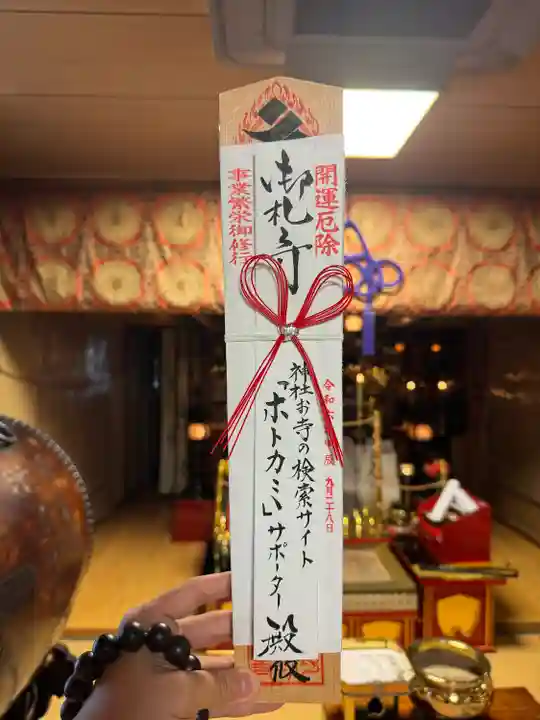 開運厄除
御札守
事業繁栄御修行
令和六 辰 九月二十八日
神社お寺の検索サイト
「ホトカミ」サポーター 殿